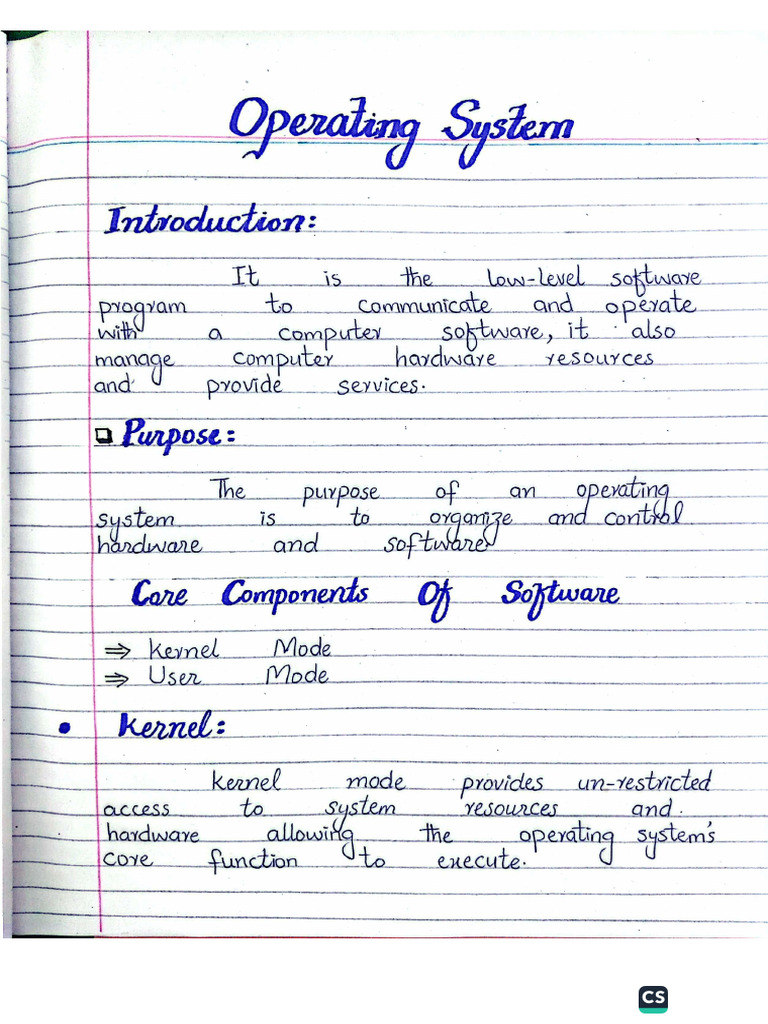 Operating System
Introduction:
It is the low-level software
program to communicate and operate
with a computer software, it also
manage computer hardware resources
and provide services.
Purpose:
The purpose of an operating
system is to organize and control
hardware and software
Core Components Of Software
⇒ Kernel Mode
⇒ User Mode
• Kernel:
Kernel mode provides un-restricted
access to system resources and
hardware allowing the operating system's
core function to execute.
CS